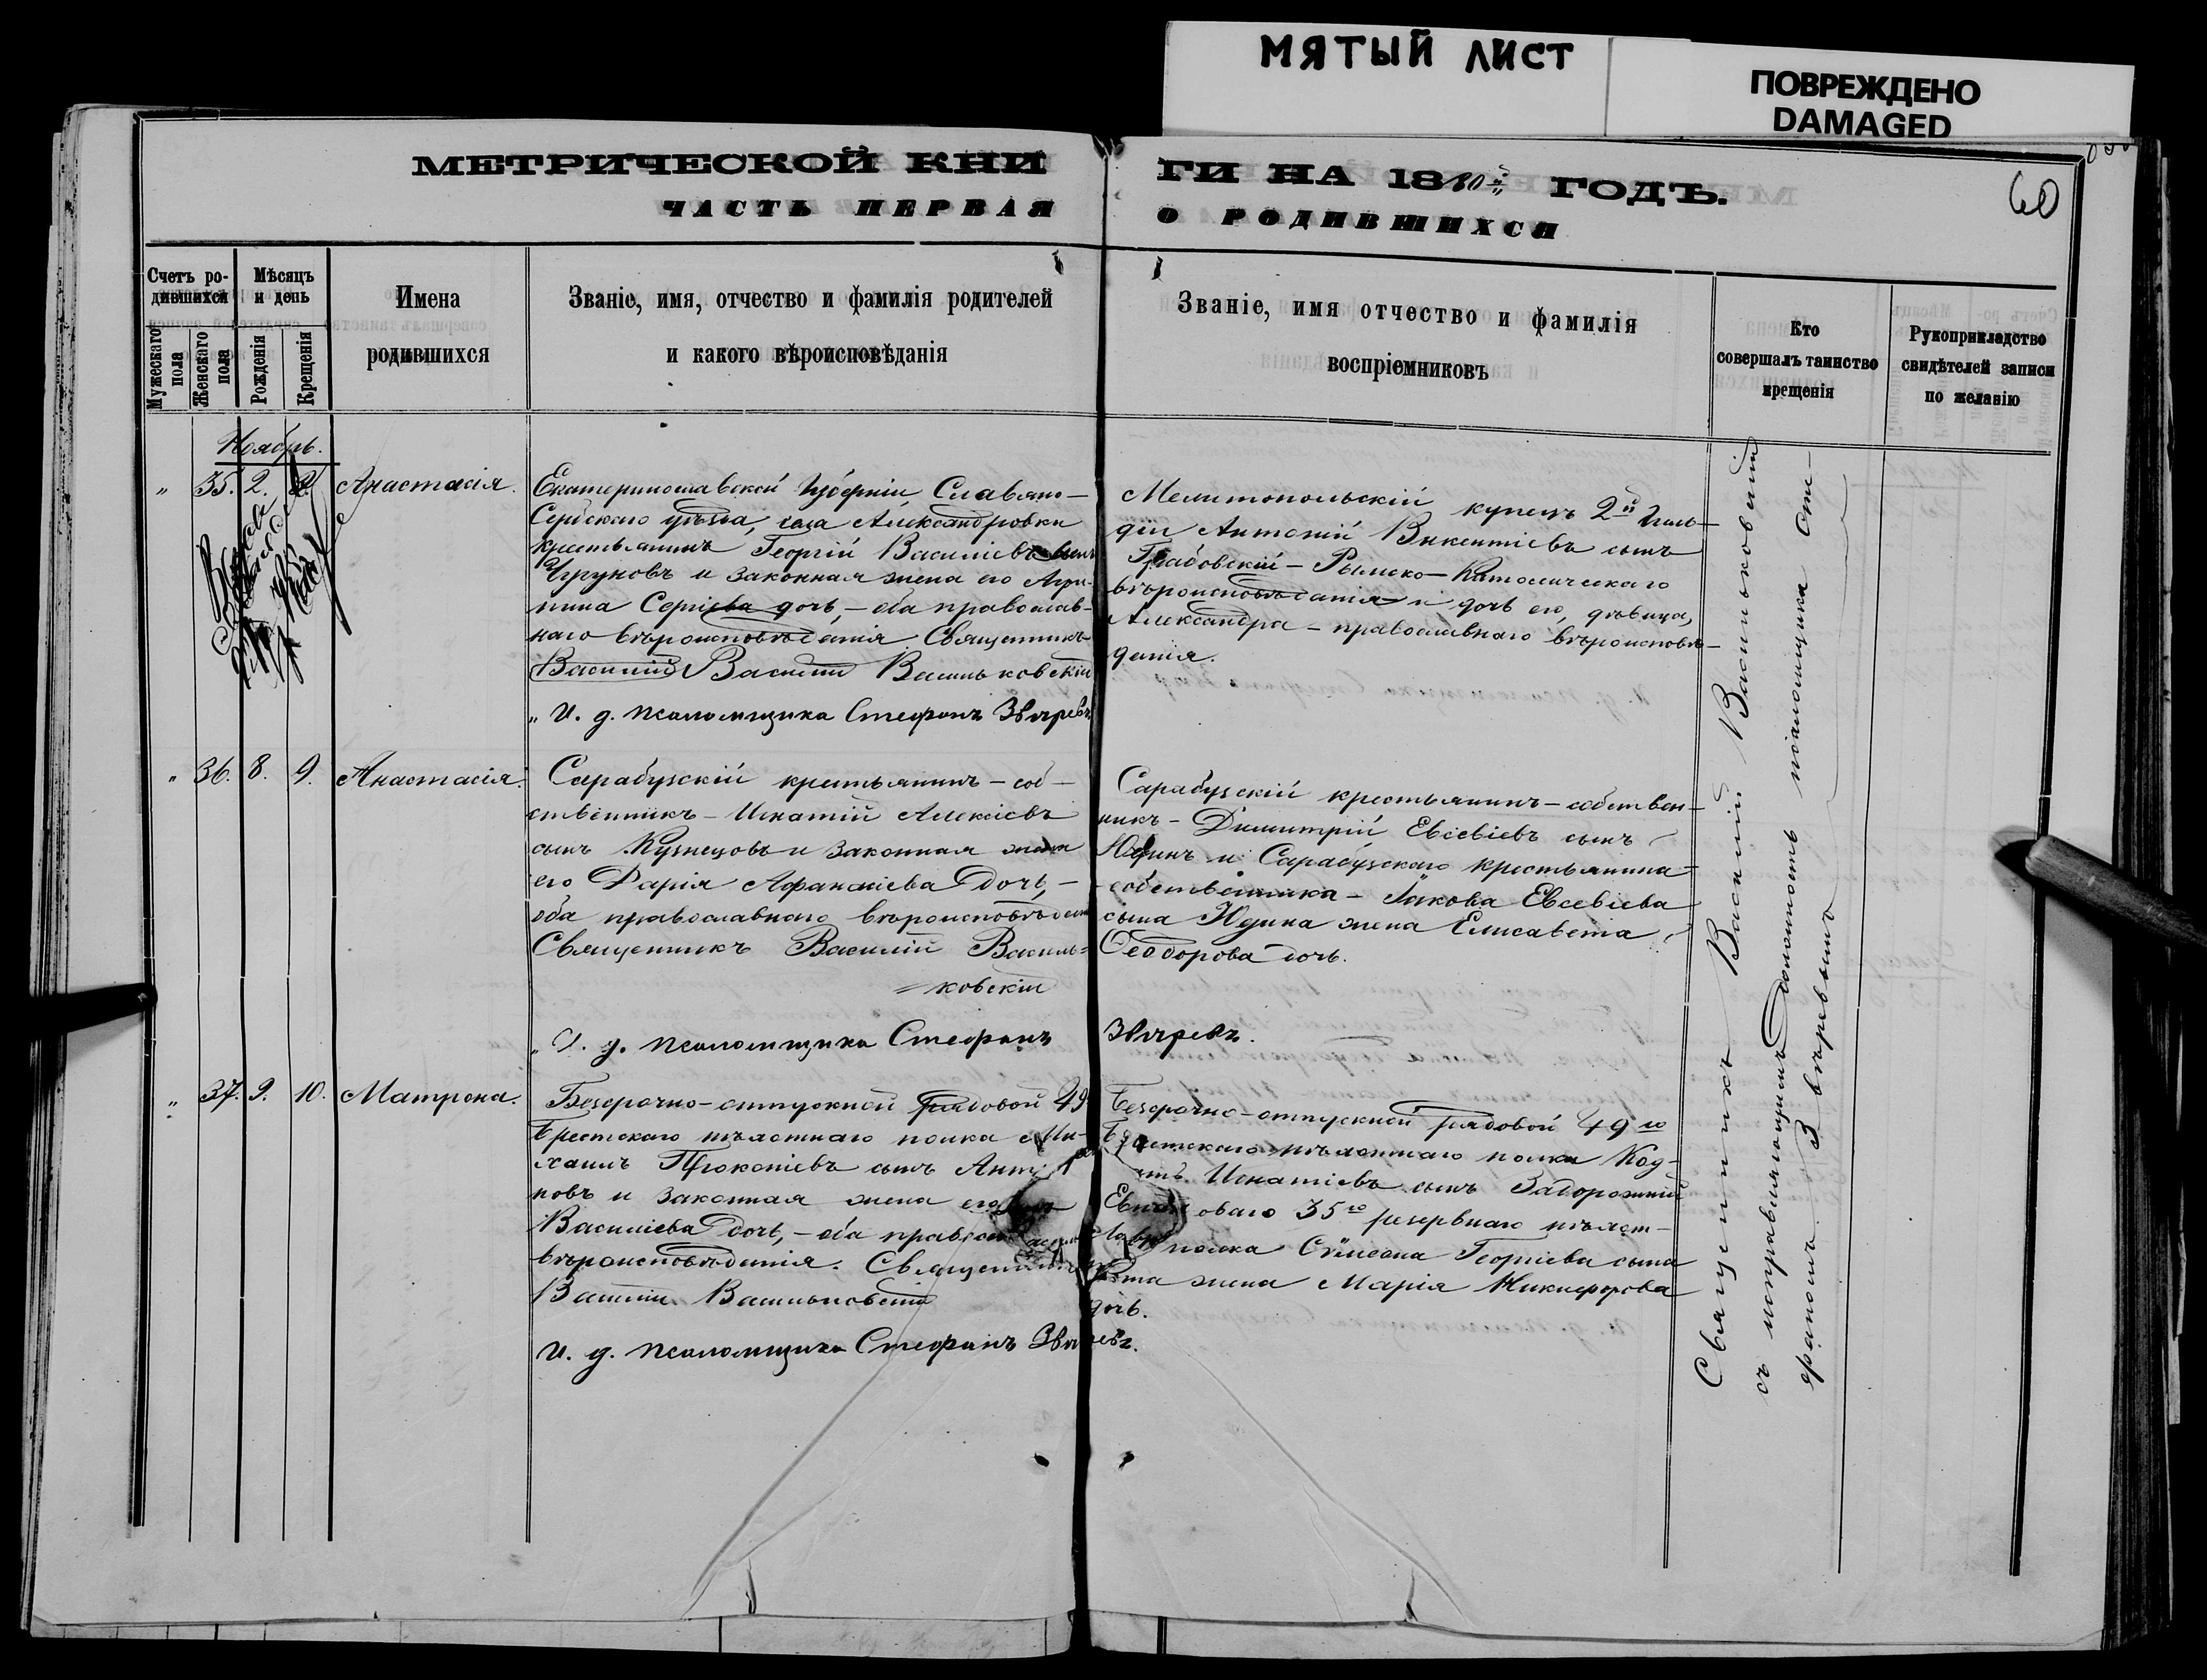 МЯТЫЙ ЛИСТ
ПОВРЕЖДЕНО
DAMAGED
МЕТРИЧЕСКОЙ КНИ
ГИ НА 1880й ГОДЪ.
60
ЧАСТЬ ПЕРВАЯ
О РОДИВШИХСЯ
Счетъ ро-
дившихся
Мужескаго пола
Женскаго пола
Мѣсяцъ
и день
Рожденія
Крещенія
Имена
родившихся
Званіе, имя, отчество и фамилія родителей
и какого вѣроисповѣданія
Званіе, имя отчество и фамилія
воспріемниковъ
Кто
совершалъ таинство
крещенія
Рукоприкладство
свидѣтелей записи
по желанію
Ноябрь.
" 35. 2. Анастасія.
Екатеринославской Губерніи Славяно-
Сербскаго уѣзда, села Александровки
крестьянинъ Георгій Василіевъ сынъ
и законная жена его Агри-
пина Сергіева дочь, - оба православ-
наго вѣроисповѣданія Священникъ
Василій Васильковскій
" И. д. псаломщика Стефанъ Звѣревъ
Мелитопольскій купецъ 2й Гиль-
діи Антоній Викентіевъ сынъ
Грабовскій - Римско-Католическаго
вѣроисповѣданія и дочь его, дѣвица,
Александра - православнаго вѣроисповѣ-
данія.
" 36. 8. 9. Анастасія.
Сарабузскій крестьянинъ - соб-
ственникъ - Игнатій Алексіевъ
сынъ Кузнецовъ и законная жена
его Дарія Афанасіева дочь, -
оба православнаго вѣроисповѣдан
Священникъ Василій Василь=
=ковскій
" И. д. псаломщика Стефанъ Звѣревъ.
Сарабузскій крестьянинъ - собствен-
никъ - Димитрій Евсевіевъ сынъ
Юдинъ и Сарабузскаго крестьянина-
собственника - Іакова Евсевіева
сына Юдина жена Елисавета
Ѳеодорова дочь.
" 37. 9. 10. Матрона.
Безсрочно-отпускной рядовой 49
Брестскаго пѣхотнаго полка Ми-
хаилъ Прокопіевъ сынъ
новъ и законная жена его
Василіева дочь, - оба православ
вѣроисповѣданія. Священникъ
Василій Васильковскій
И. д. псаломщика Стефанъ Звѣревъ.
Безсрочно-отпускной рядовой 49го
Брестскаго пѣхотнаго полка
Игнатіевъ сынъ Задорожній
35го резервнаго пѣхот-
полка Сѵмеона Георгіева сына
жена Марія Никифорова
дочь.
Священникъ Василій Васильковскій
съ исправляющимъ должность псаломщика Сте-
фаномъ Звѣревымъ